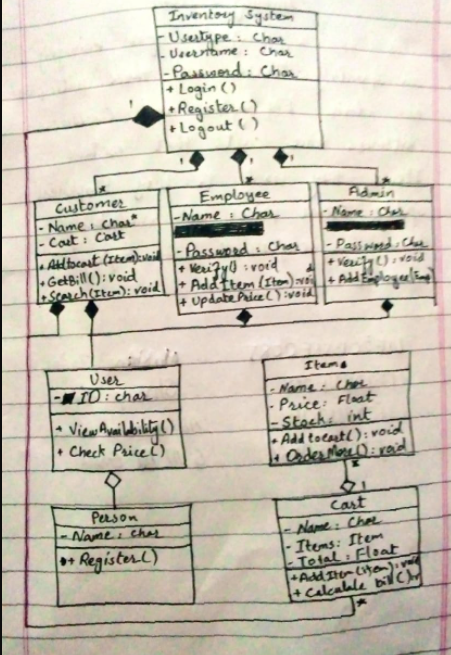 Inventory System
- Usertype : Char
- Username : Char
- Password : Char
+ Login ()
+ Register ()
+ Logout ( )
1
1
1
1
*
*
*
Customer
- Name : Char*
- Cart : Cart
+ Addtocart (Item):void
+ GetBill() : void
+ Search(Item): void
Employee
- Name : Char
- Password : Char
+ Verify() : void
+ AddItem (Item) : voi
+ UpdatePrice() : void
Admin
- Name : Char
- Password : Char
+ Verify() : void
+ AddEmployee(Emp)
User
- ID : char
+ ViewAvailability()
+ Check Price()
Items
- Name : Char
- Price : Float
- Stock : int
+ Addtocart() : void
+ OrderMore() : void
*
1
Person
- Name : char
+ Register()
Cart
- Name : Char
- Items : Item
- Total : Float
+ AddItem (item) : void
+ Calculate bill() :v
*